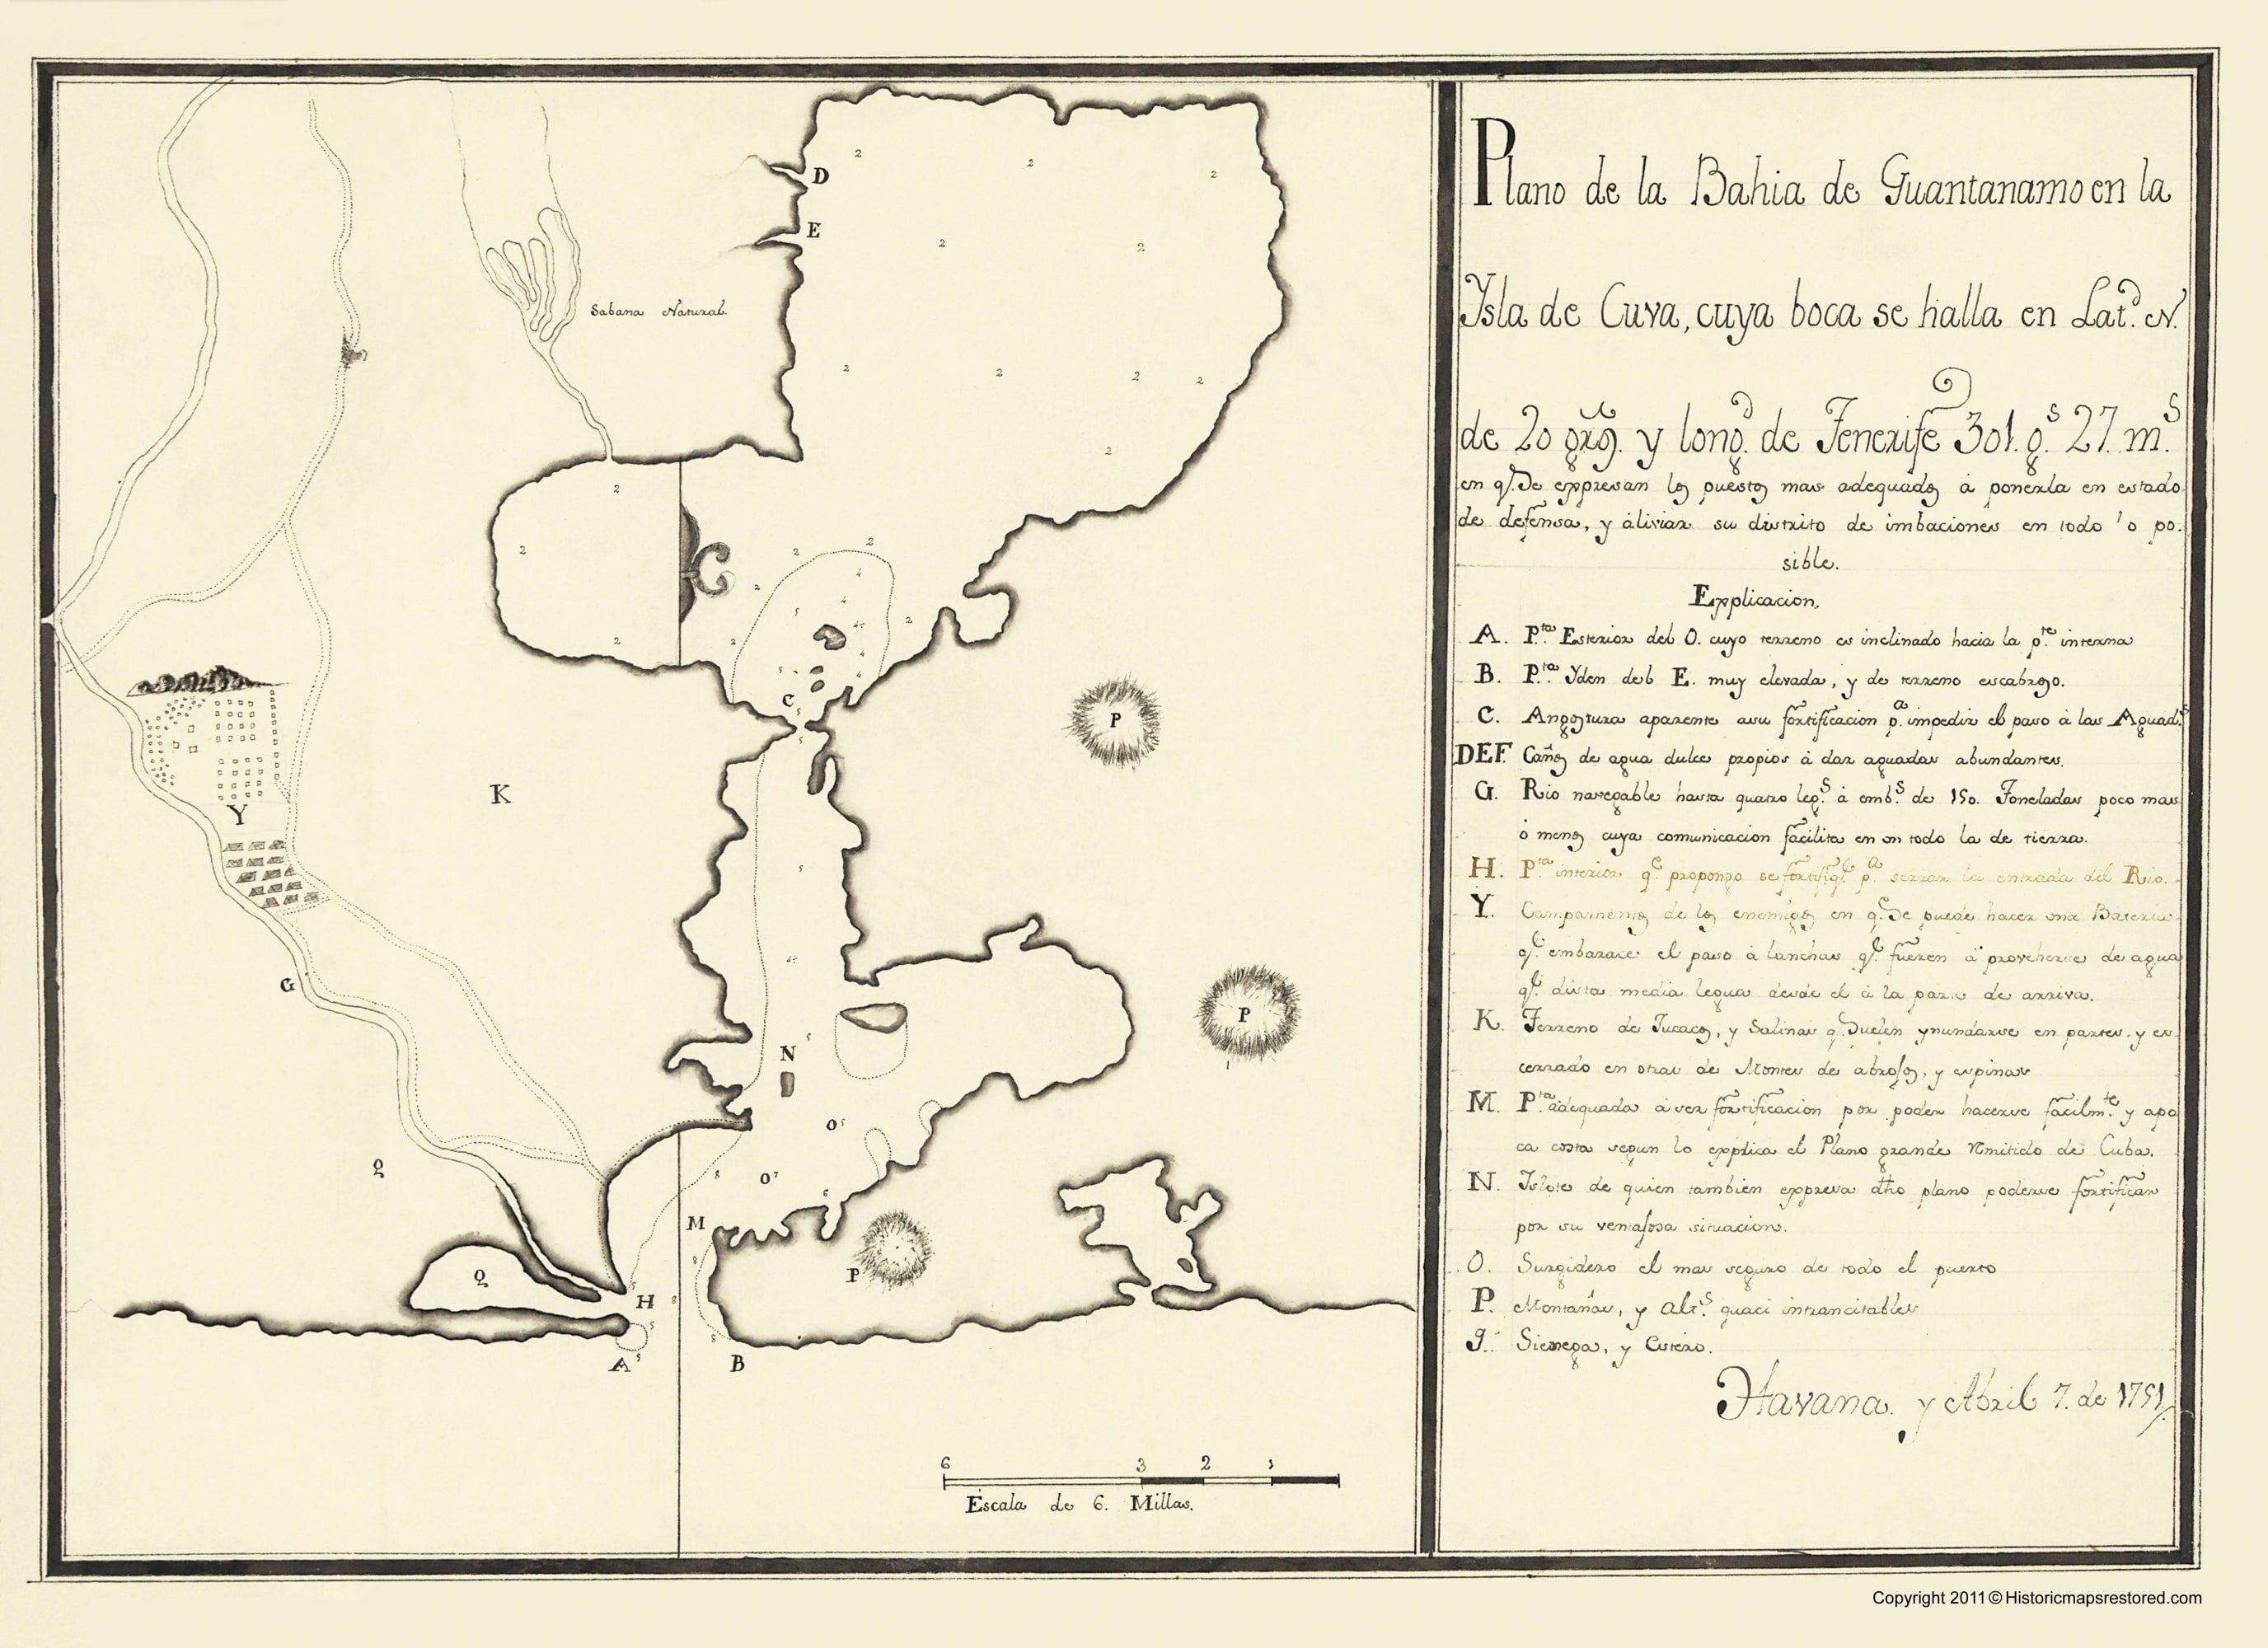 Plano de la Bahia de Guantanamo en la
Ysla de Cuva, cuya boca se halla en Lat.d N.
de 20 grs. y long.d de Tenerife 301. g.s 27. m.s
en q.e Se expresan los puestos mas adequados à ponerla en estado
de defensa, y àliviar su distrito de imbaciones en todo lo po-
sible.
Explicacion.
A. P.ta Esterior del O. cuyo terreno es inclinado hacia la p.te interna
B. P.ta Yden del E. muy elevada, y de terreno escabroso.
C. Angostura aparente asu fortificacion p.a impedir el paso à las Aguad.s
DEF. Caños de agua dulce propios à dar aguadas abundantes.
G. Rio navegable hasta quatro leg.s à emb.s de 150. Toneladas poco mas
ò menos cuya comunicacion facilita en un todo la de tierra.
H. P.ta interior q.e propongo se fortifiq.e p.a serrar la entrada del Rio.
Y. Campamentos de los enemigos en q.e Se puede hacer una Bateria
q.e embarace el paso à lanchas q.e fueren à proveherse de agua
q.e dista media legua desde el à la parte de arriva.
K. Terreno de Tucacos, y Salinas q.e Suelen ynundarse en partes. y es
cerrado en otras de Montes de abrojos, y espinas
M. P.ta adequada à ser fortificacion por poder hacerse facilm.te y apo
ca costa segun lo explica el Plano grande Rmitido de Cuba.
N. Islote de quien tambien expresa dho plano poderse fortificar
por su ventajosa situacion.
O. Surgidero el mas seguro de todo el puerto
P. Montañas, y alt.s quaci intrancitables
q. Sienega, y Estero.
Havana. y Abril 7. de 1751
D
E
Sabana Natural.
C
P
K
Y
G
P
N
O
Q
O
M
P
Q
H
A
B
6 3 2 1
Escala de 6. Millas.
Copyright 2011 © Historicmapsrestored.com